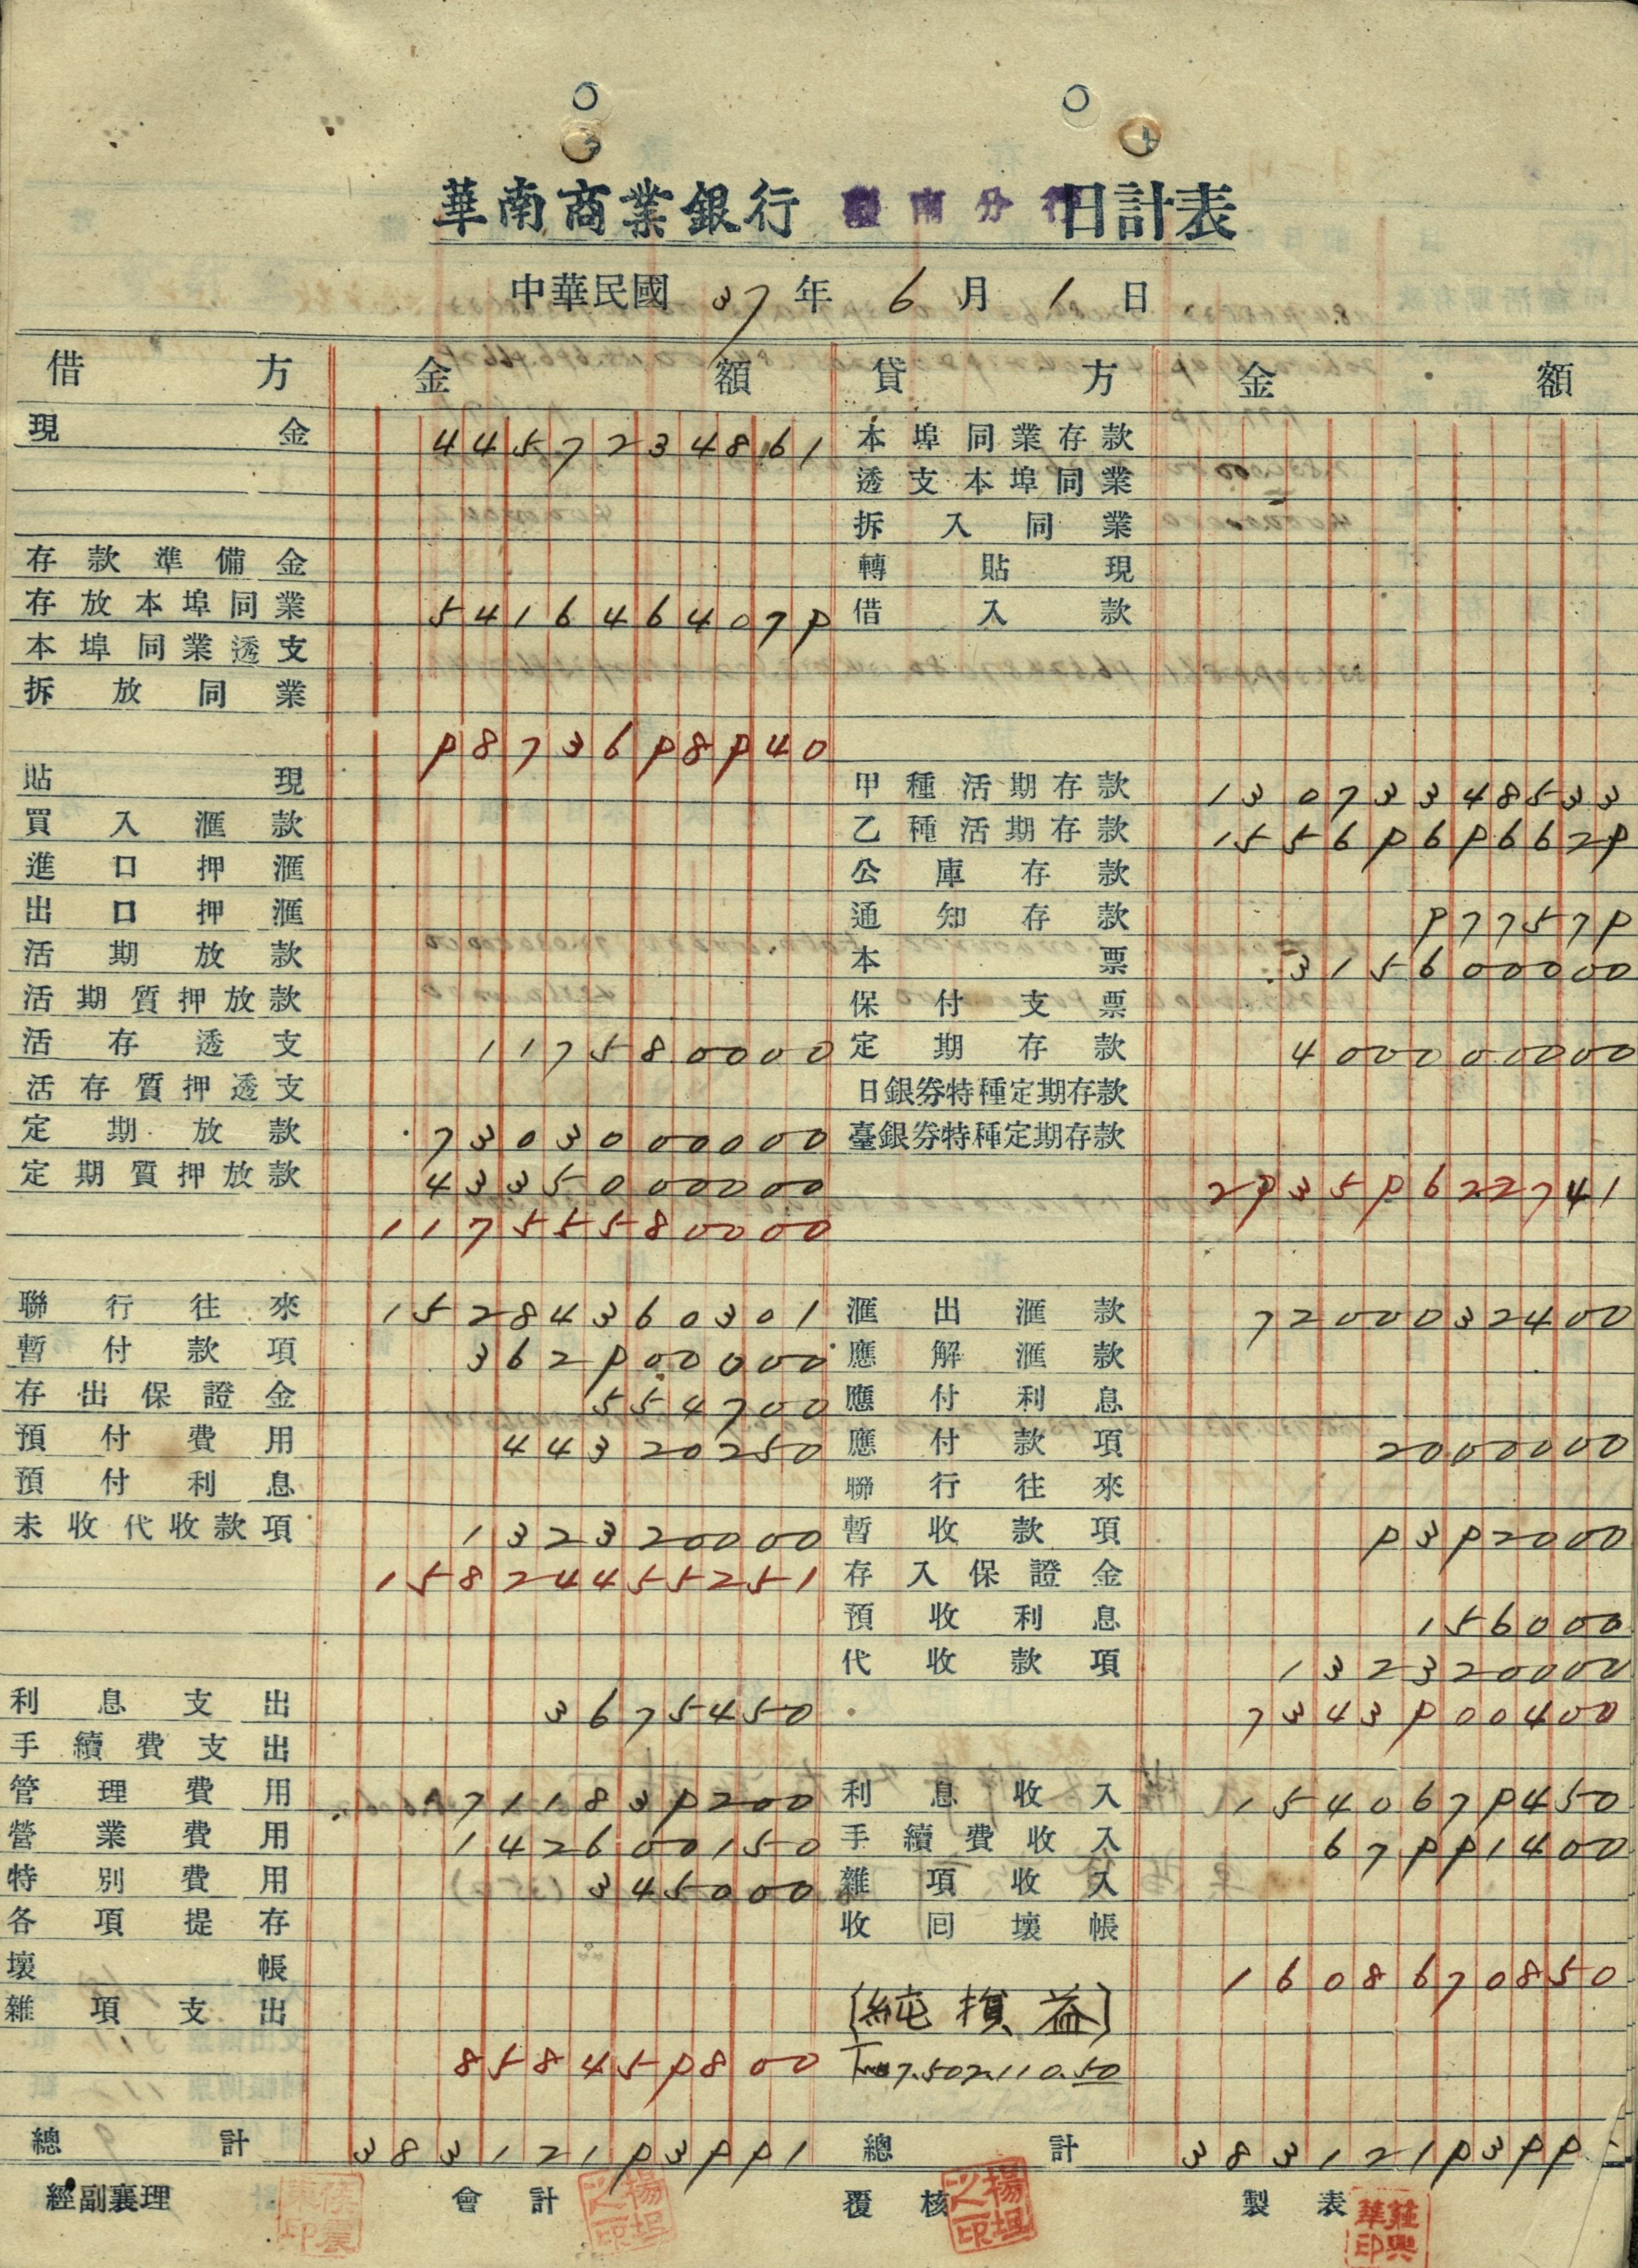 華南商業銀行 臺南分行 日計表
中華民國 37 年 6 月 1 日
借方 金額 貸方 金額
現金 4457234861 本埠同業存款
透支本埠同業
拆入同業
存款準備金 轉貼現
存放本埠同業 5416464079 借入款
本埠同業透支
拆放同業
9873698940
貼現 甲種活期存款 13073348533
買入滙款 乙種活期存款 15569696629
進口押滙 公庫存款
出口押滙 通知存款 977579
活期放款 本票 315600000
活期質押放款 保付支票
活存透支 117580000 定期存款 400000000
活存質押透支 日銀券特種定期存款
定期放款 7303000000 臺銀券特種定期存款
定期質押放款 4335000000 29359622741
11755580000
聯行往來 15284360301 滙出滙款 7200032400
暫付款項 362900000 應解滙款
存出保證金 554700 應付利息
預付費用 44320250 應付款項 2000000
預付利息 聯行往來
未收代收款項 132320000 暫收款項 9392000
15824455251 存入保證金
預收利息 156000
代收款項 132320000
利息支出 3675450 7343900400
手續費支出
管理費用 711839200 利息收入 1540679450
營業費用 142600150 手續費收入 67991400
特別費用 345000 雜項收入
各項提存 收囘壞帳
壞帳 1608670850
雜項支出 〔純損益〕
858459800 7.502.110.50
總計 38312193991 總計 3831219399
經副襄理 會計 覆核 製表
楊坦之印 楊坦之印 莊興華印